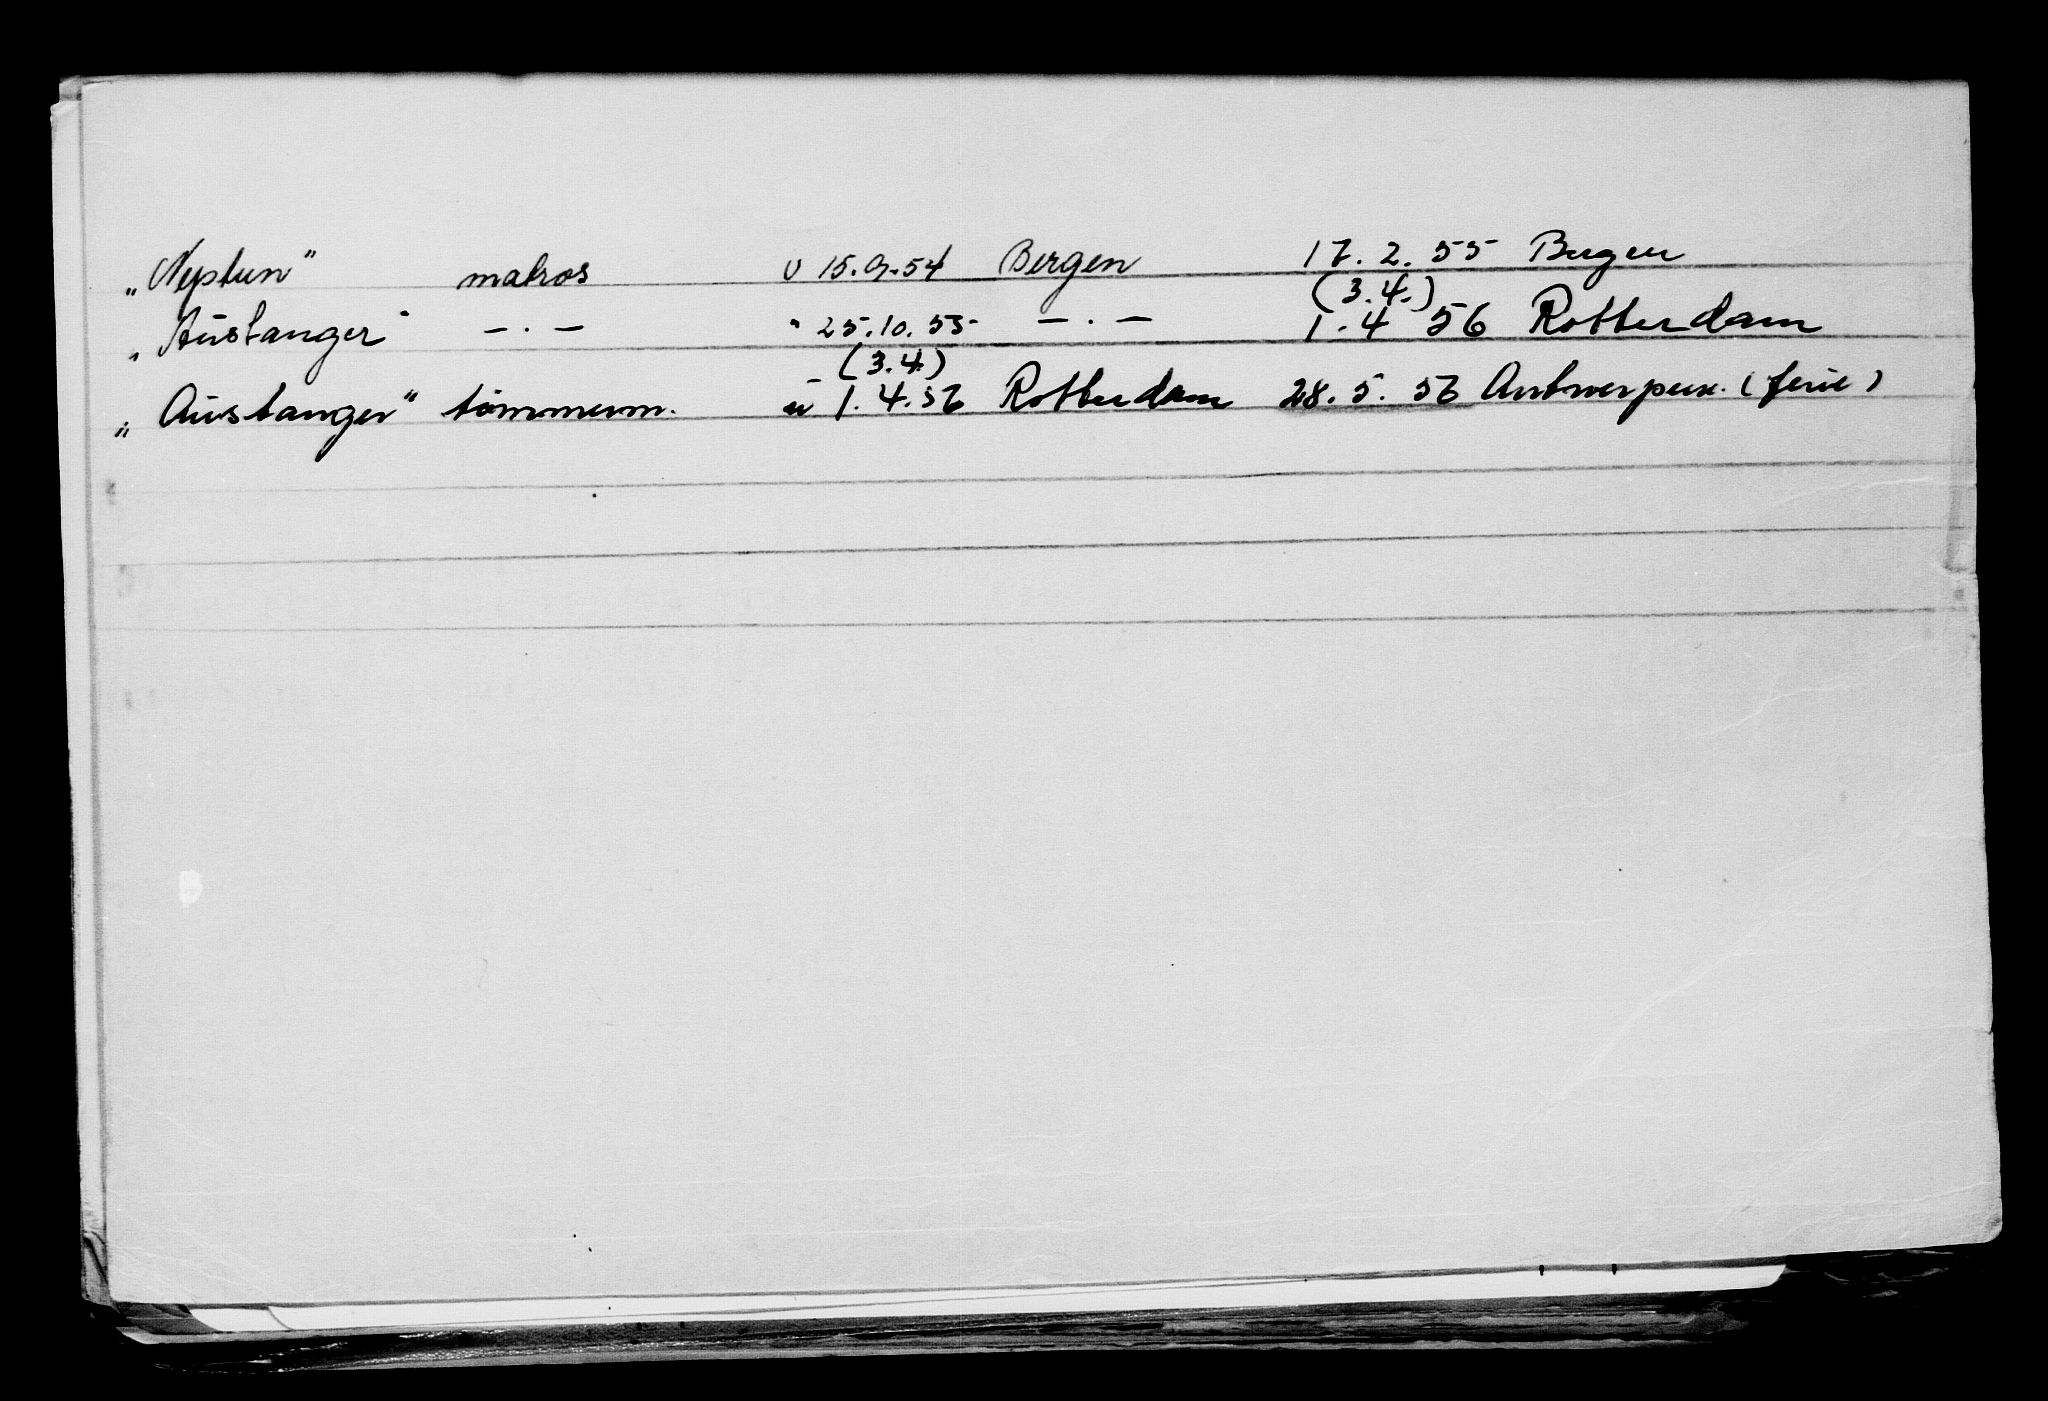 „Neptun" matros u 15.9.54 Bergen 17.2.55 Bergen
(3.4.)
„Austanger" — . — " 25.10.55 — . — 1.4 56 Rotterdam
(3.4.)
„Austanger" tømmerm. u 1.4.56 Rotterdam 28.5.56 Antwerpen. (ferie)